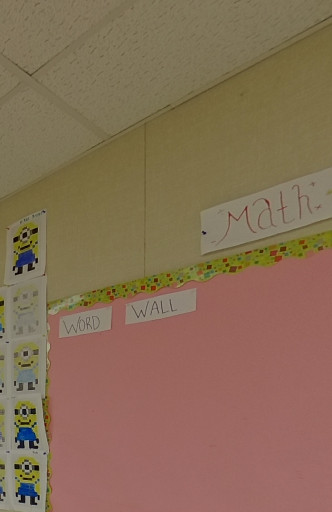 Math
WORD WALL